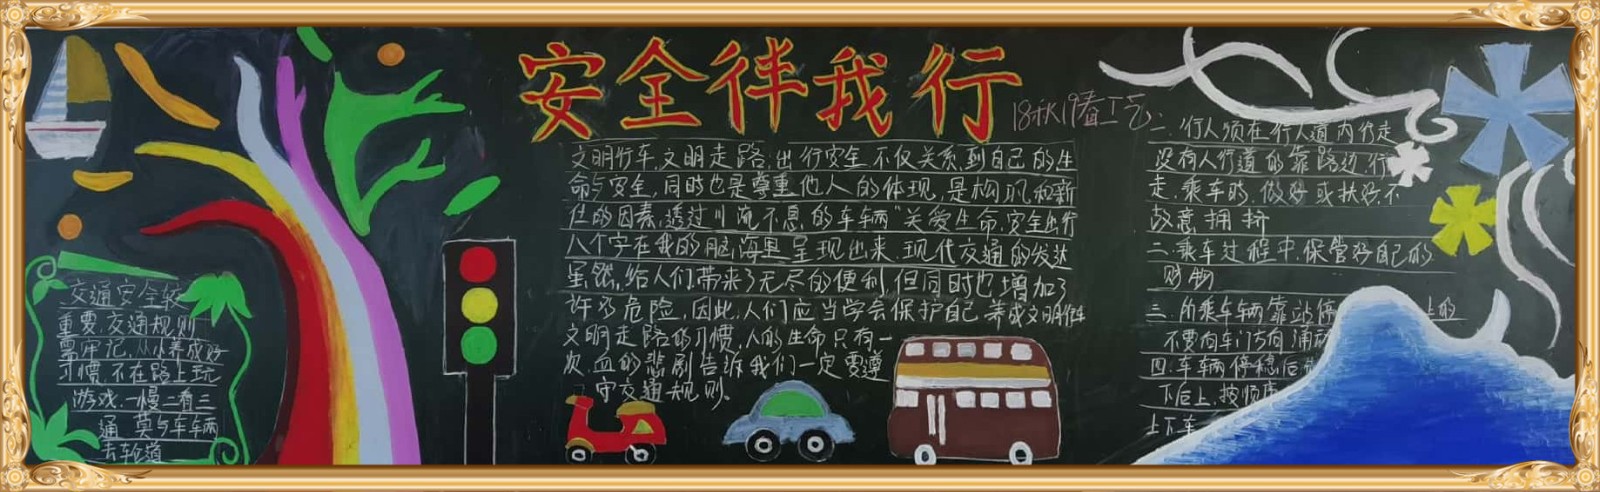 安全伴我行
交通安全较
重要,交通规则
需牢记,从小养成好
习惯,不在路上玩
游戏,一慢二看三
通 莫与车车辆
去车道
文明行车,文明走路,出行安全不仅关系到自己的生
命与安全,同时也是尊重他人的体现,是构巩和新
住的因素,透过川流不息的车车辆"关爱生命,安全出行
八个字在我的脑海里呈现出来,现代交通的发达
虽然给人们带来了无尽的便利,但同时也增加了
许多危险,因此,人们应当学会保护自己,养成文明行车
文明走路的习惯,人的生命只有一
次,血的悲剧告诉我们一定要遵
守交通规则。
一、行人须在行人道内行走
没有人行道的靠路边行
走,乘车时,做好或扶好,不
故意拥挤
二、乘车过程中,保管好自己的
财物
三、所乘车辆靠站停 上的
不要向车门方向涌动
四、车辆停稳后
下后上,按顺序
上下车